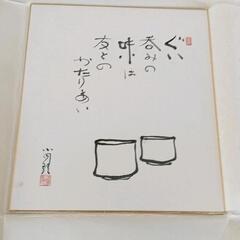 ぐい
呑みの
味は
友との
かたりあい